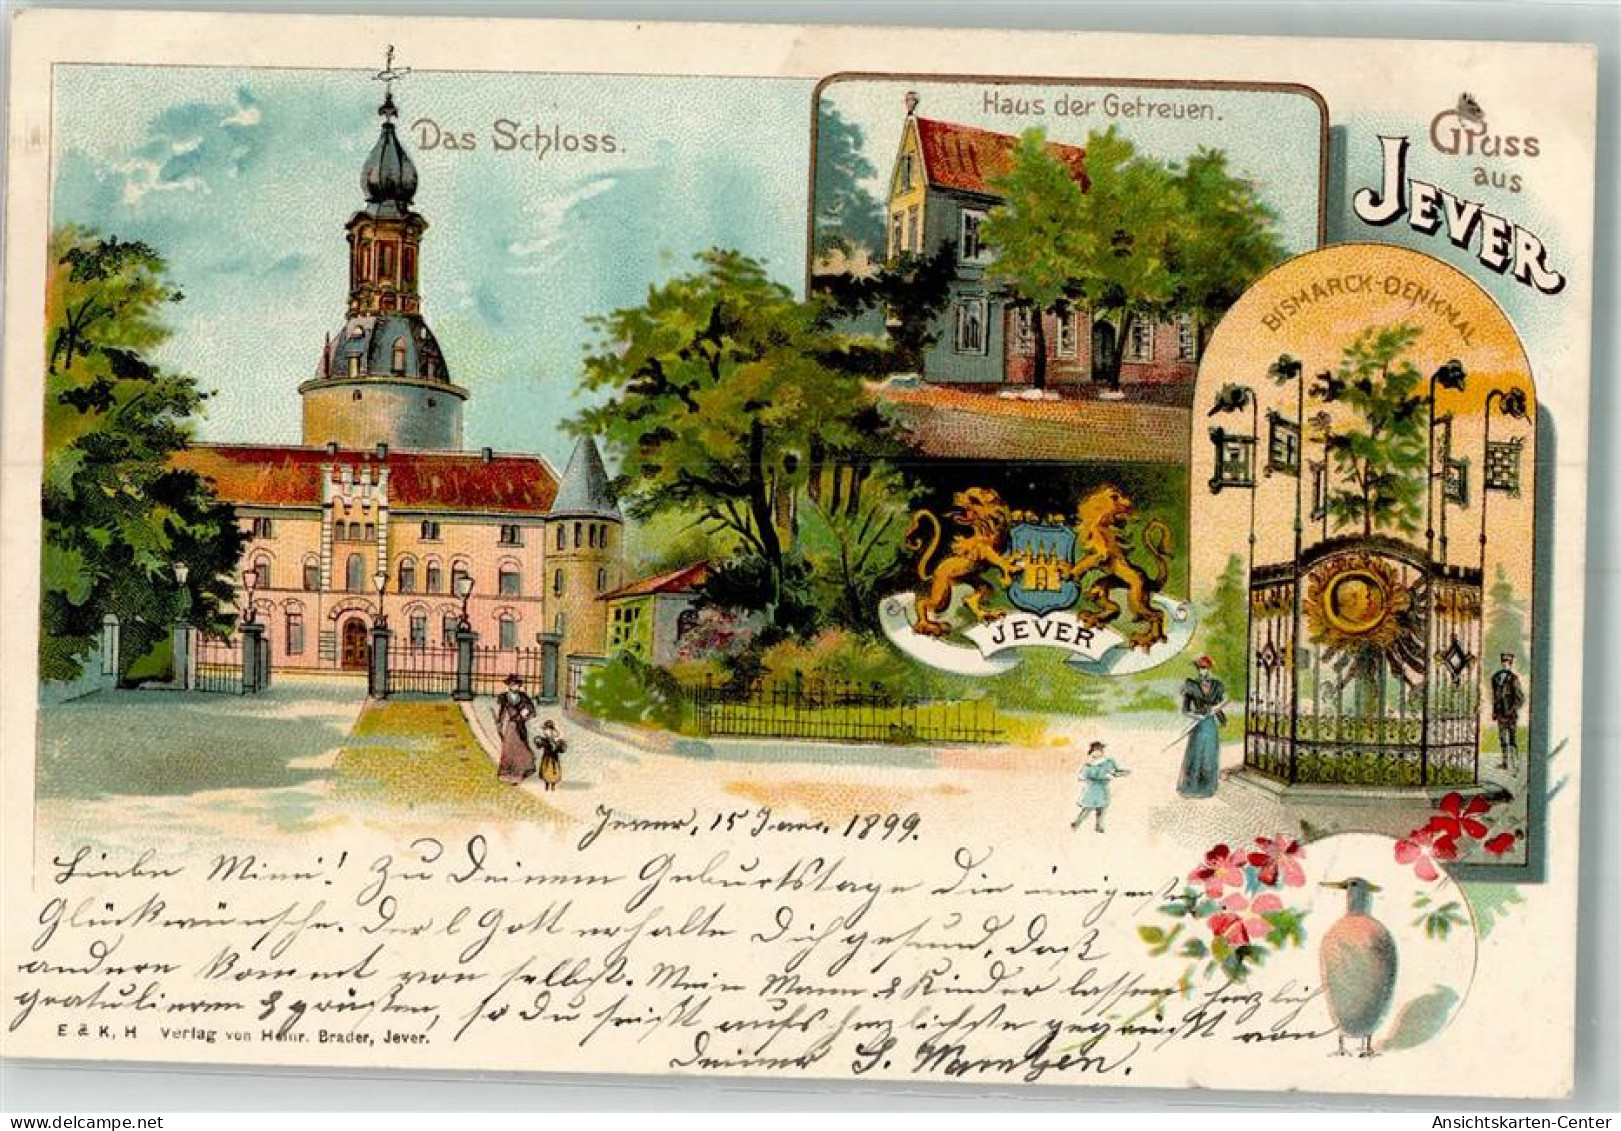 Das Schloss.
Haus der Getreuen.
Gruss
aus
JEVER
BISMARCK-DENKMAL
JEVER
Jever, 15 Janr. 1899.
Liebe Mimi! Zu Deinem Geburtstage die innigsten
Glückwünsche. Der l Gott erhalte Dich gesund, daß
andere kommt von selbst. Mein Mann & Kinder lassen herzlich
gratulieren & grüßen, so Du seist aufs herzlichste gegrüßt von
Deiner
E & K, H Verlag von Heinr. Brader, Jever.
Ansichtskarten-Center